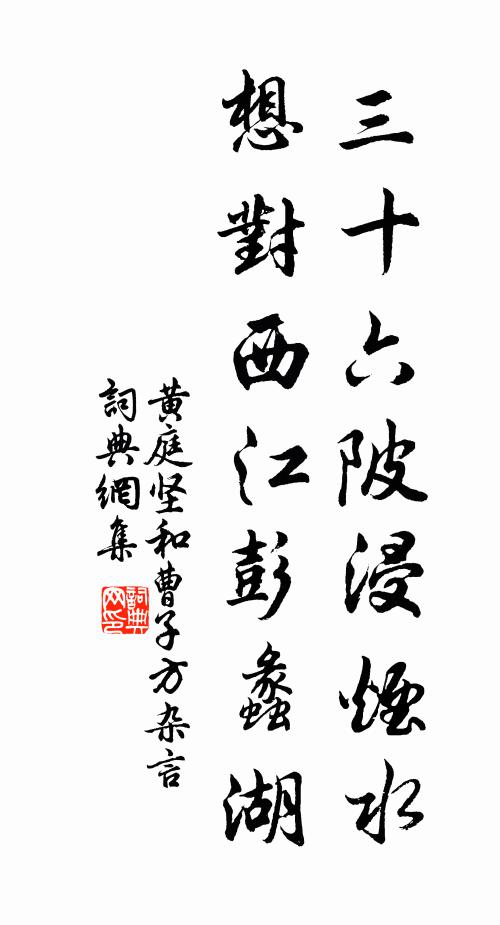 三十六陂浸煙水
想對西江彭蠡湖
黄庭坚和曹子方杂言
詞典網集
詞典
网印